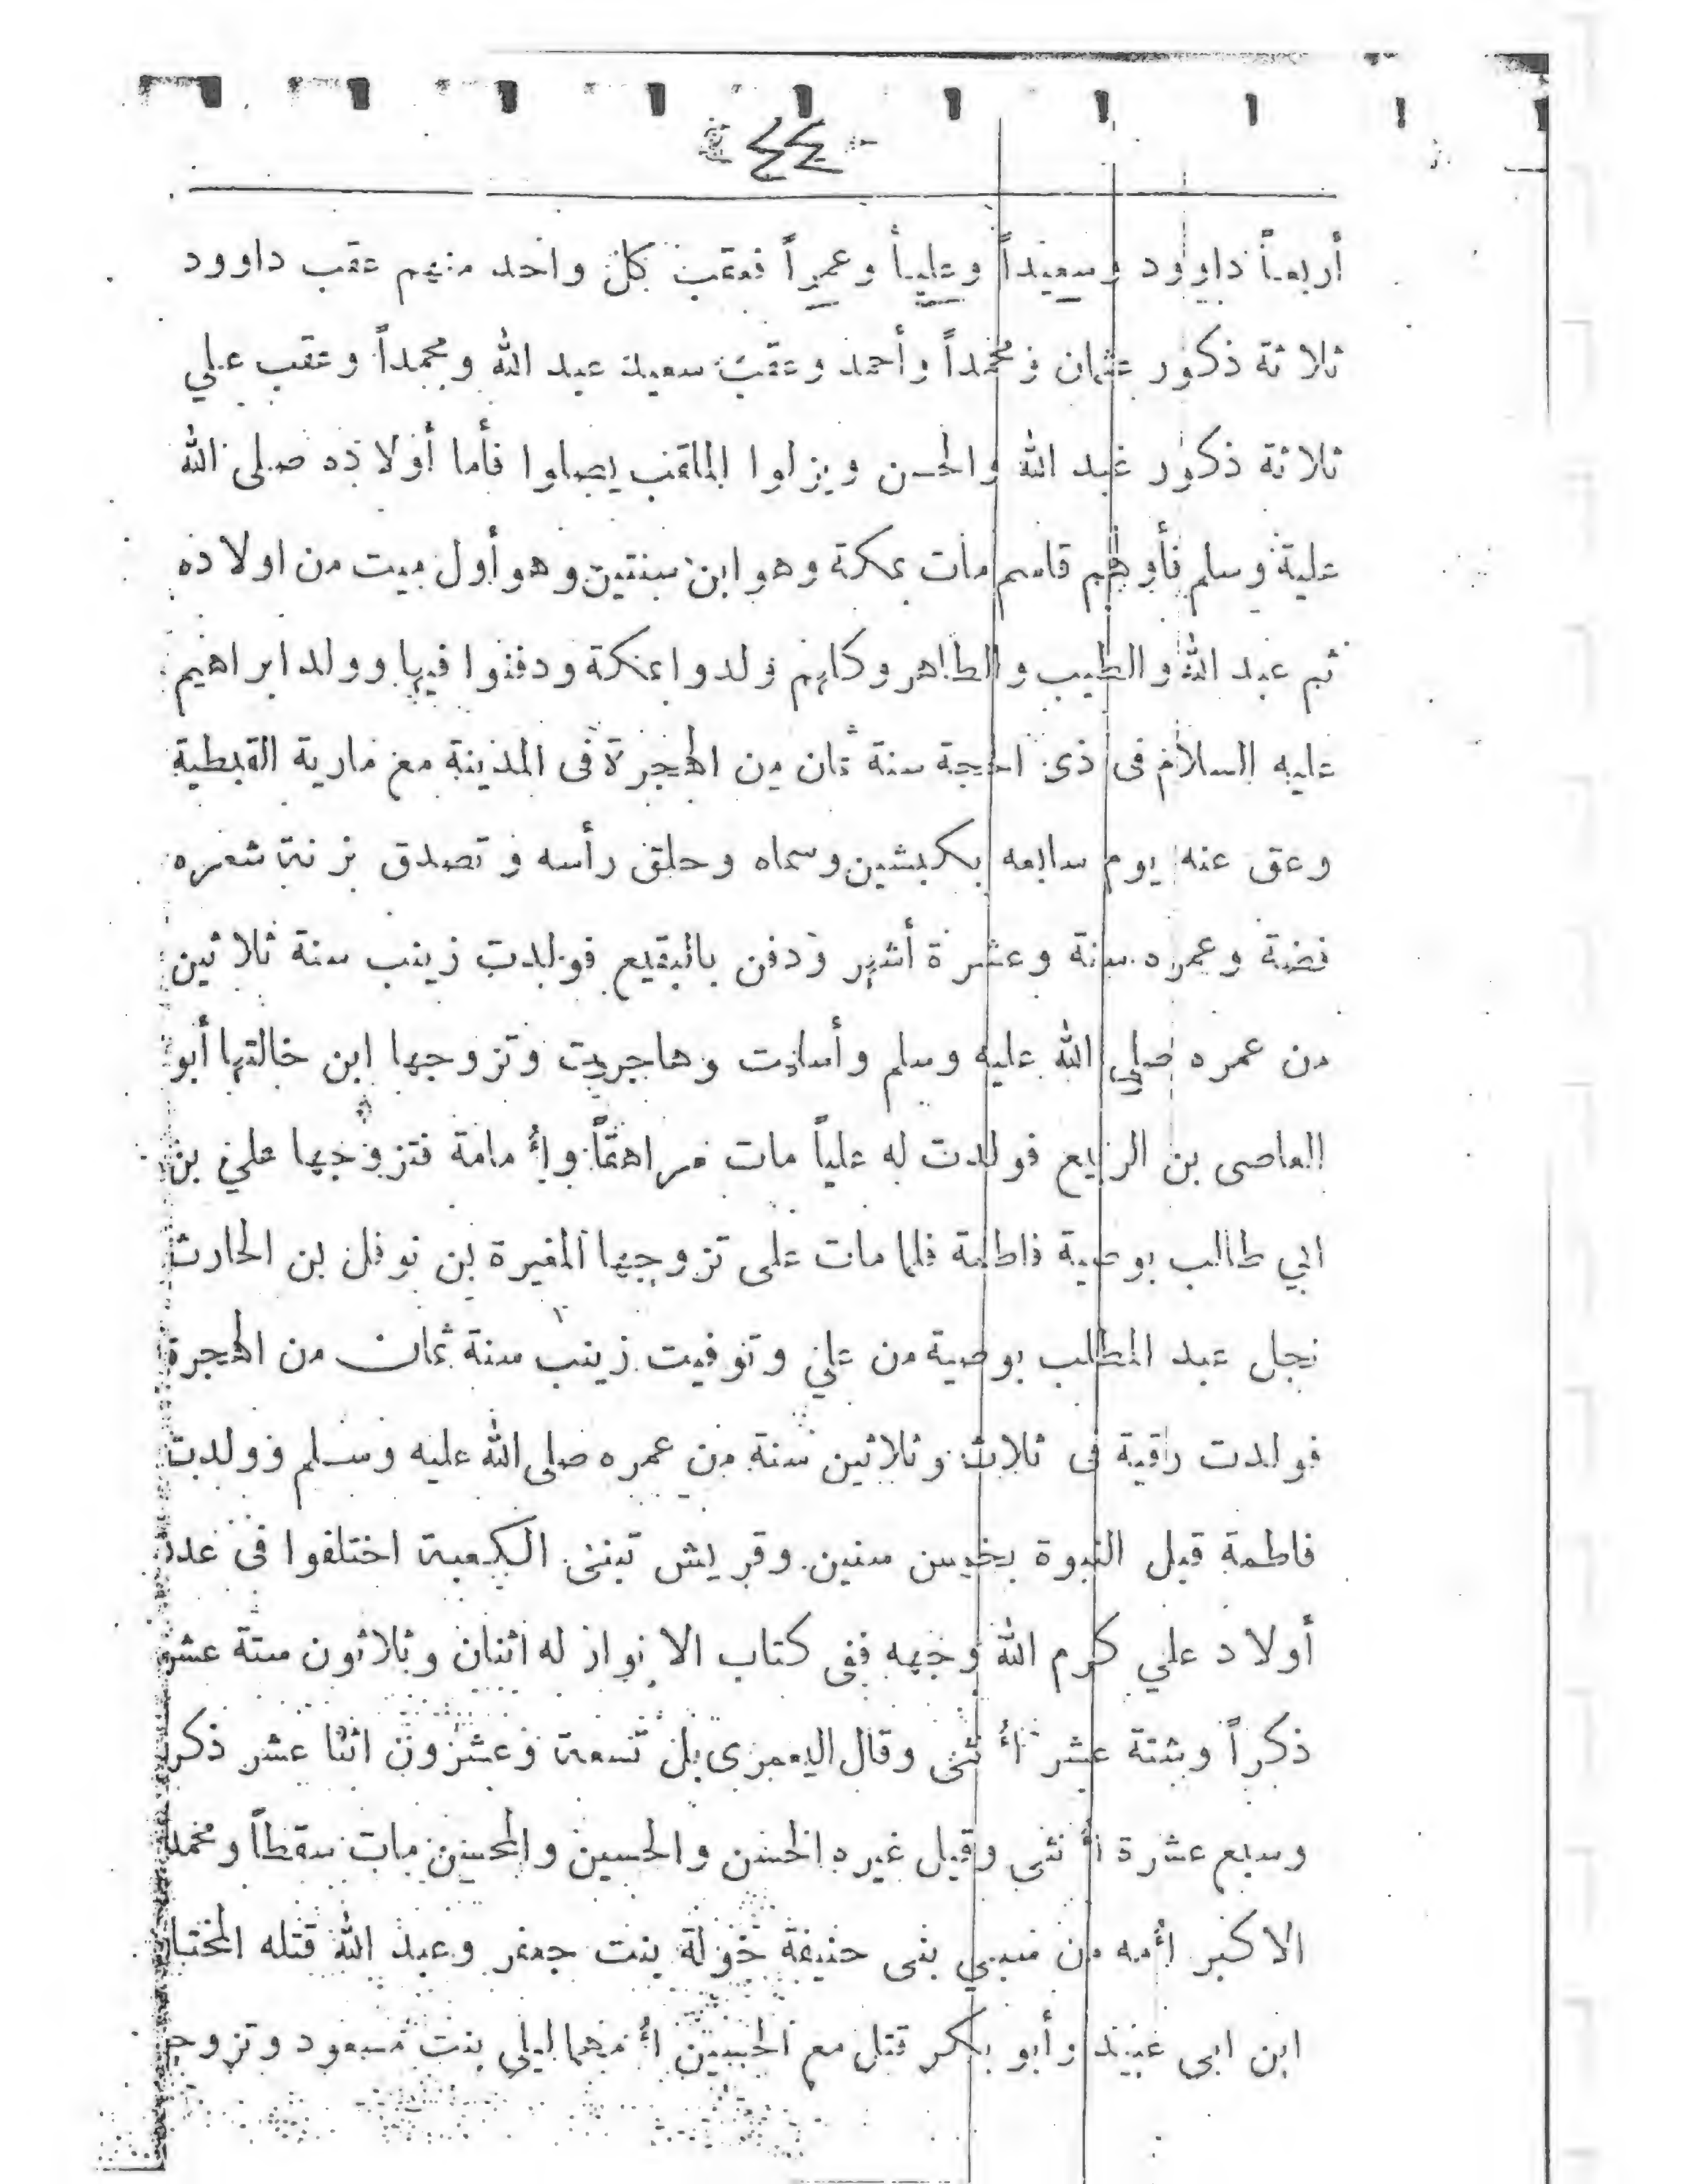 ٤٤
أربعاً داوود وسعيداً وعلياً وعمراً فعقب كل واحد منهم عقب داوود
ثلاثة ذكور عثمان ومحمداً وأحمد وعقب سعيد عبد الله ومحمداً وعقب علي
ثلاثة ذكور عبد الله والحسن ويزلوا الملقب يصلوا فأما أولاده صلى الله
عليه وسلم فأولهم قاسم مات بمكة وهو ابن سنتين وهو أول ميت من اولاده
ثم عبد الله والطيب والطاهر وكلهم ولدوا بمكة ودفنوا فيها وولد ابراهيم
عليه السلام فى ذى الحجة سنة ثمان من الهجرة فى المدينة مع مارية القبطية
وعق عنه يوم سابعه بكبشين وسماه وحلق رأسه وتصدق بزنة شعره
فضة وعمره سنة وعشرة أشهر ودفن بالبقيع فولدت زينب سنة ثلاثين
من عمره صلى الله عليه وسلم وأسلمت وهاجرت وتزوجها ابن خالتها أبو
العاصى بن الربيع فولدت له علياً مات مراهقاً وأمامة فتزوجها علي بن
ابي طالب بوصية فاطمة فلما مات على تزوجها المغيرة بن نوفل بن الحارث
نجل عبد المطلب بوصية من علي وتوفيت زينب سنة ثمان من الهجرة
فولدت راقية فى ثلاث وثلاثين سنة من عمره صلى الله عليه وسلم وولدت
فاطمة قبل النبوة بخمس سنين وقريش تبنى الكعبة اختلفوا فى عدد
أولاد علي كرم الله وجهه ففى كتاب الانوار له اثنان وثلاثون ستة عشر
ذكراً وستة عشر أنثى وقال اليعمرى بل تسعة وعشرون اثنا عشر ذكر
وسبع عشرة أنثى وقيل غيره الحسن والحسين والمحسن مات سقطاً ومحمد
الاكبر أمه من سبي بنى حنيفة خولة بنت جعفر وعبد الله قتله المختا
ابن ابى عبيد وأبو بكر قتل مع الحسين أمهما ليلى بنت مسعود وتزوج